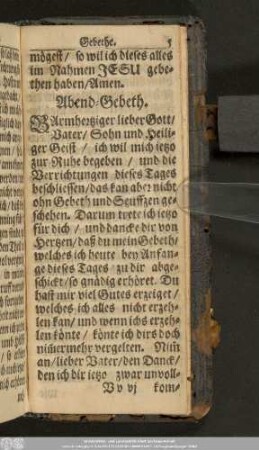 Gebethe. 5
mögest / so wil ich dieses alles
im Nahmen JESU gebe-
then haben / Amen.
Abend-Gebeth.
BArmhertziger lieber Gott /
Vater / Sohn und Heili-
ger Geist / ich wil mich ietzo
zur Ruhe begeben / und die
Verrichtungen dieses Tages
beschliessen / das kan aber nicht
ohn Gebeth und Seufftzen ge-
schehen. Darum trete ich ietzo
für dich / und dancke dir von
Hertzen / daß du mein Gebeth /
welches ich heute bey Anfan-
ge dieses Tages zu dir abge-
schickt / so gnädig erhöret. Du
hast mir viel Gutes erzeiget /
welches ich alles nicht erzeh-
len kan / und wenn ichs erzeh-
len könte / könte ich dirs doch
nim̃ermehr vergelten. Nim̃
an / lieber Vater / den Danck /
den ich dir ietzo zwar unvoll-
Vv vj kom-